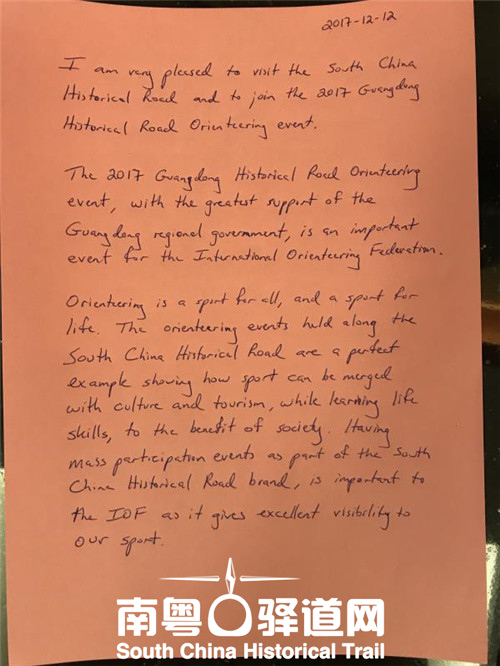 2017-12-12
I am very pleased to visit the South China
Historical Road and to join the 2017 Guangdong
Historical Road Orienteering event.
The 2017 Guangdong Historical Road Orienteering
event, with the greatest support of the
Guangdong regional government, is an important
event for the International Orienteering Federation.
Orienteering is a sport for all, and a sport for
life. The orienteering events held along the
South China Historical Road are a perfect
example showing how sport can be merged
with culture and tourism, while learning life
skills, to the benefit of society. Having
mass participation events as part of the South
China Historical Road brand, is important to
the IOF as it gives excellent visibility to
our sport.
南粤驿道网
South China Historical Trail